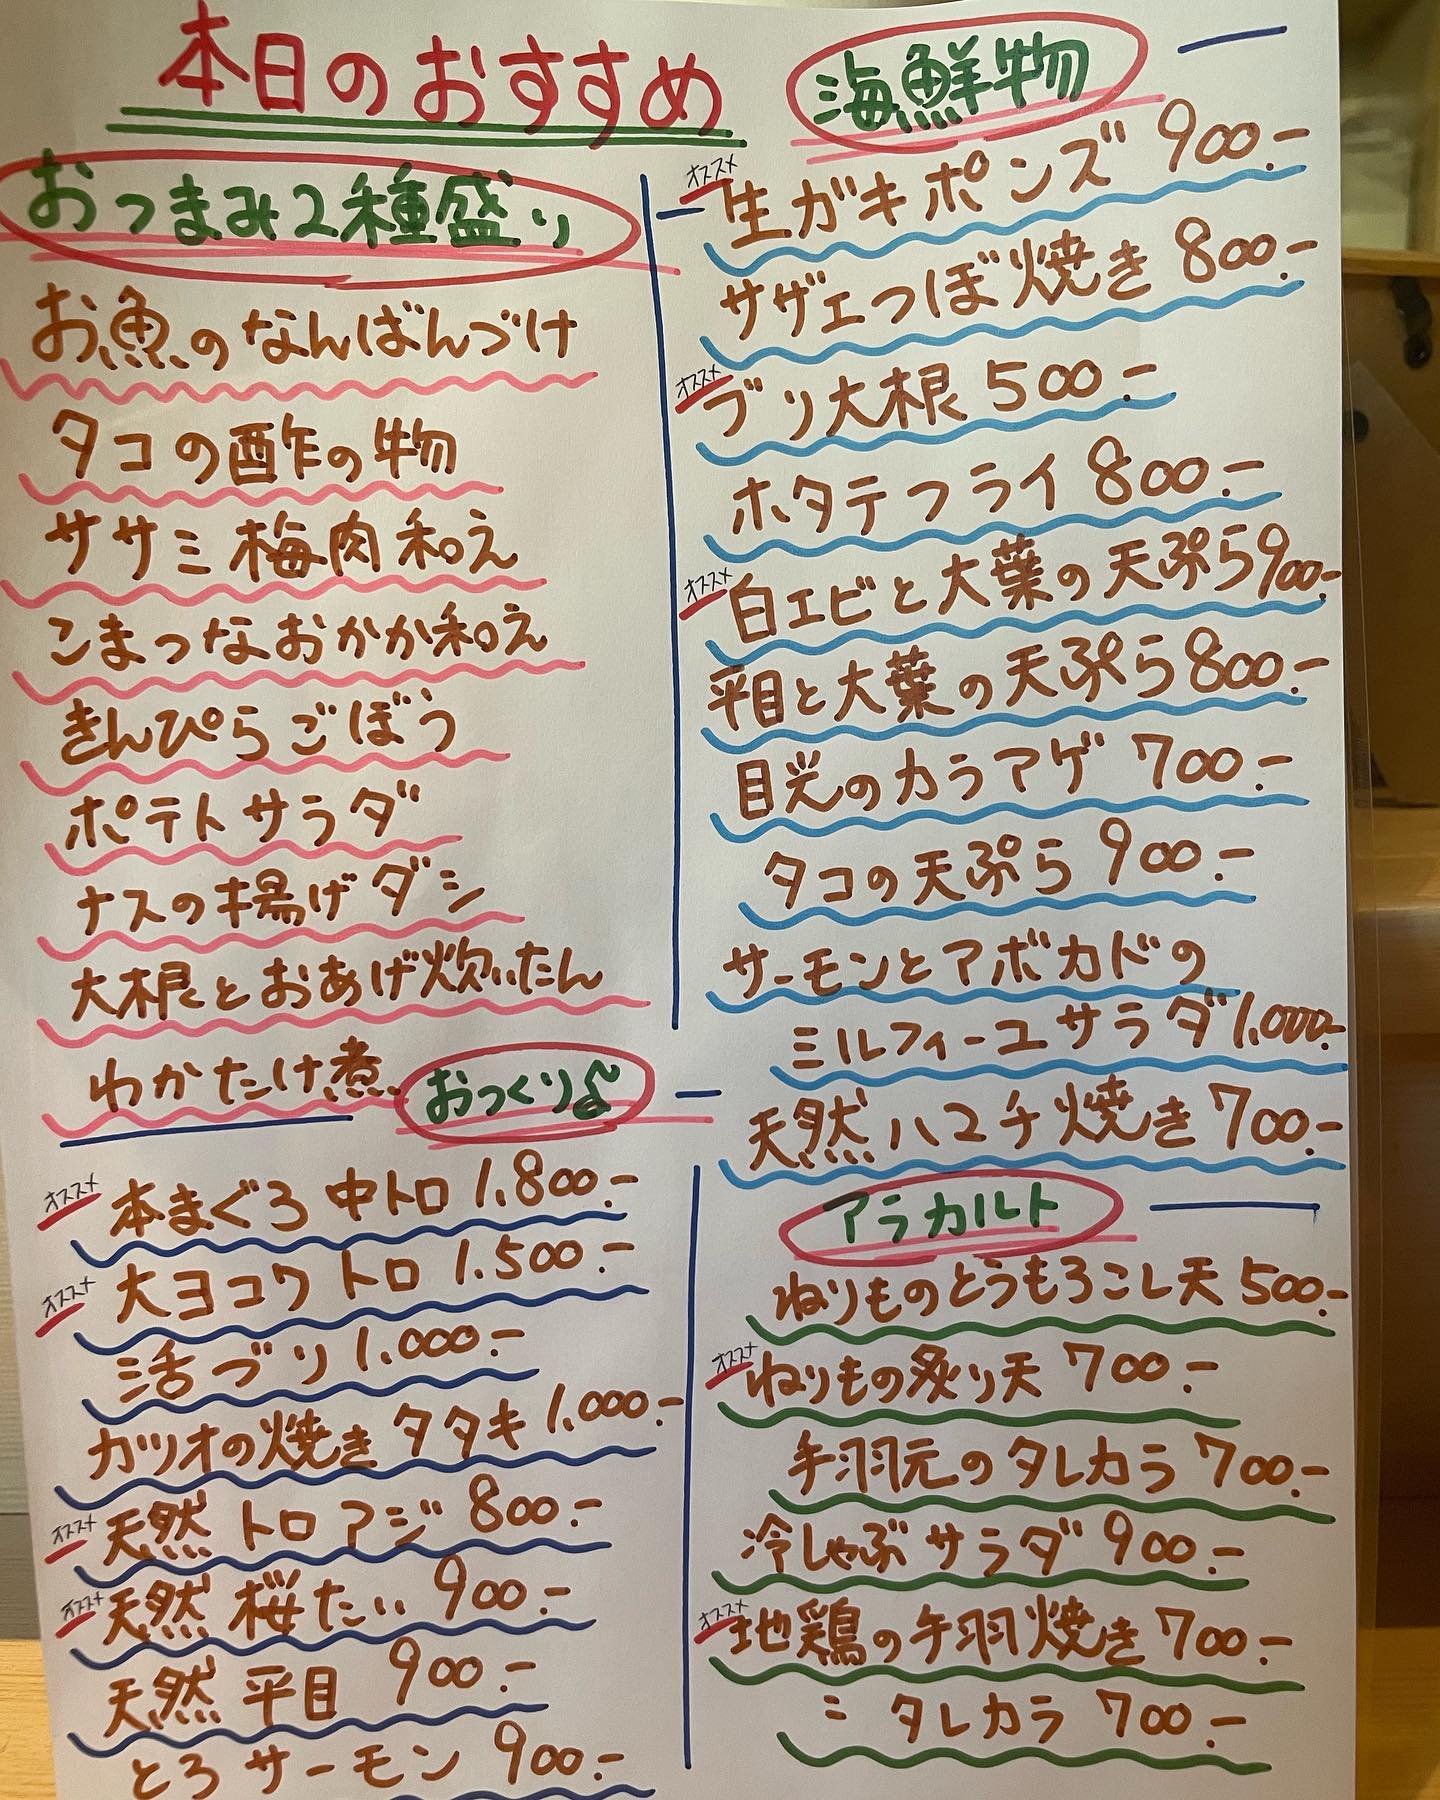 本日のおすすめ
おつまみ2種盛り
お魚のなんばんづけ
タコの酢の物
ササミ梅肉和え
こまつなおかか和え
きんぴらごぼう
ポテトサラダ
ナスの揚げダシ
大根とおあげ炊いたん
わかたけ煮
おつくり
オススメ
本まぐろ 中トロ 1.800.-
オススメ
大ヨコワ トロ 1.500.-
活ブリ 1.000.-
カツオの焼き タタキ 1.000.-
オススメ
天然 トロアジ 800.-
オススメ
天然 桜たい 900.-
天然 平目 900.-
とろサーモン 900.-
海鮮物
オススメ
生ガキポンズ 900.-
サザエつぼ焼き 800.-
オススメ
ブリ大根 500.-
ホタテフライ 800.-
オススメ
白エビと大葉の天ぷら900.-
平目と大葉の天ぷら800.-
目光のカラアゲ 700.-
タコの天ぷら 900.-
サーモンとアボカドの
ミルフィーユサラダ1.000.-
天然ハマチ焼き 700.-
アラカルト
ねりものとうもろこし天 500.-
オススメ
ねりもの炙り天 700.-
手羽元のタレカラ 700.-
冷しゃぶサラダ 900.-
オススメ
地鶏の手羽焼き 700.-
〃 タレカラ 700.-